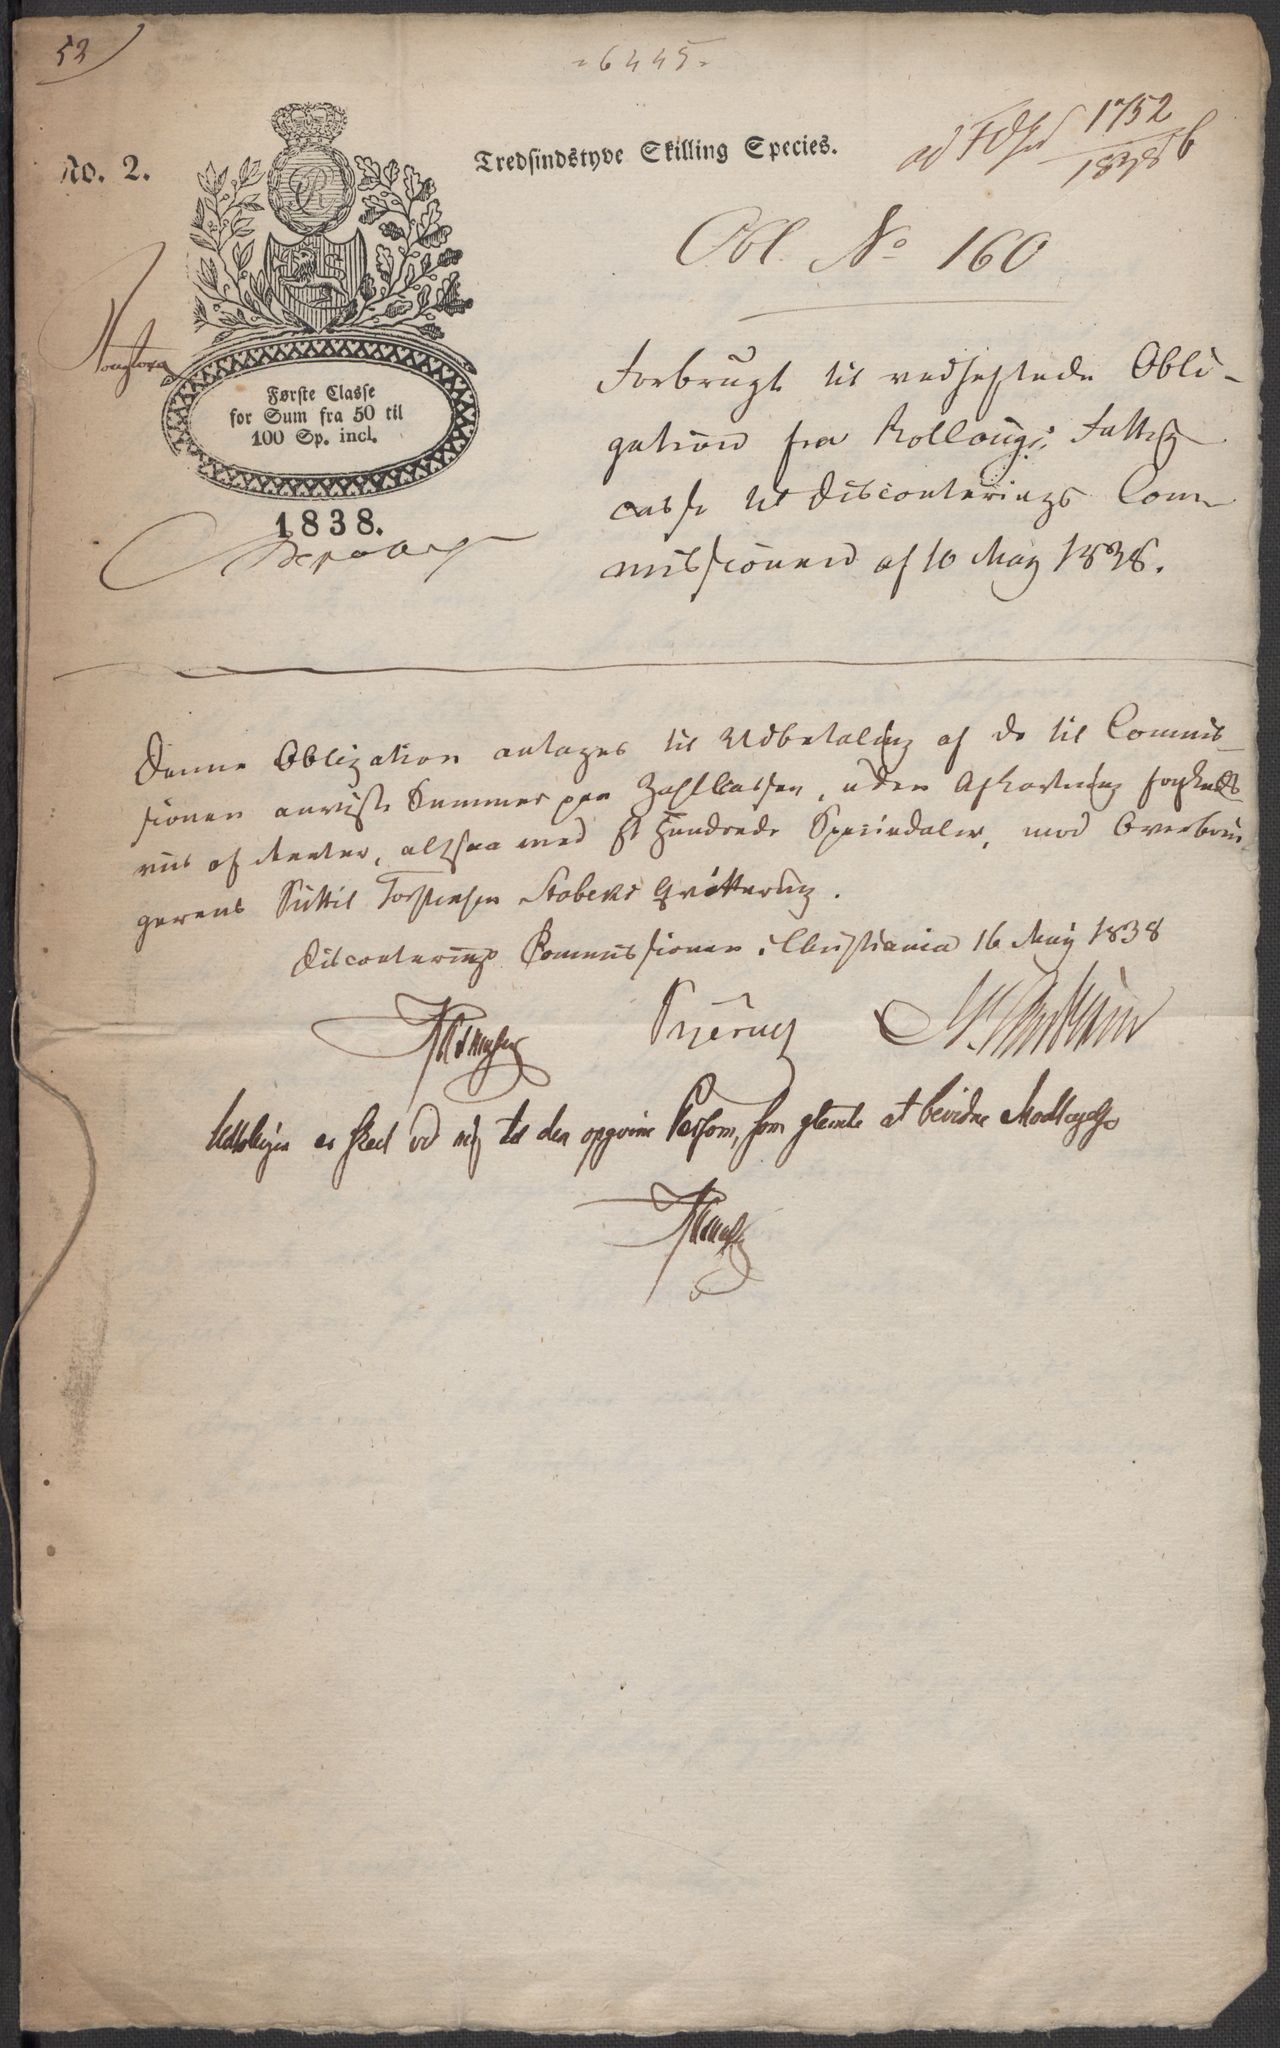 52
6445
No. 2.
Tredsindstyve Skilling Species.
ad 1752/1838 b
Obl. No 160
Første Classe
for Sum fra 50 til
100 Sp. incl.
1838.
Forbrugt til vedheftede Obli-
gation fra Rollougs Fattig
casse til Disconterings Com-
missionen af 10 May 1838.
Denne Obligation antages til Udbetaling af de til Commis-
sionen anviste Summer paa Zahlkassen, uden Afkortning
af Renter, altsaa med Et Hundrede Speciedaler, mod Overbrin-
gerens Kittil Torstensen Stabeks Qvittering.
Disconterings Kommissionen i Christiania 16 May 1838
Bjerring
er skeet ved mig til den opgivne Person, som glemte at bevidne Modtagelse